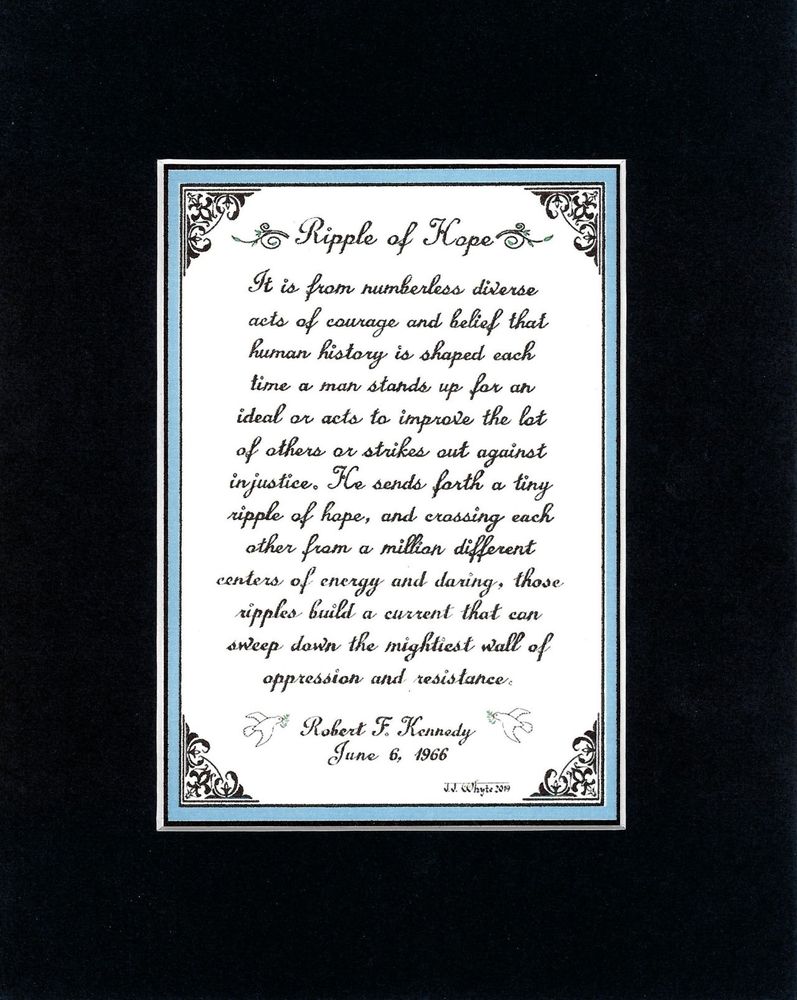 Ripple of Hope
It is from numberless diverse
acts of courage and belief that
human history is shaped each
time a man stands up for an
ideal or acts to improve the lot
of others or strikes out against
injustice. He sends forth a tiny
ripple of hope, and crossing each
other from a million different
centers of energy and daring, those
ripples build a current that can
sweep down the mightiest wall of
oppression and resistance.
Robert F. Kennedy
June 6, 1966
J.J. Whyte 2019